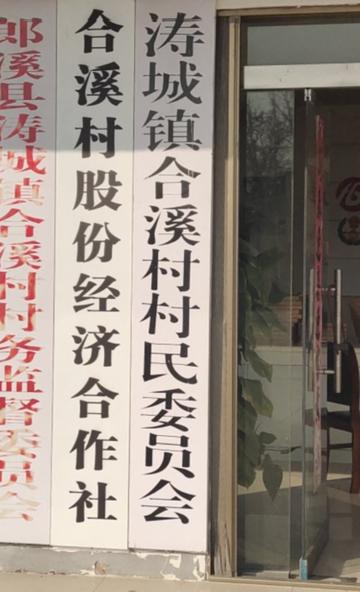 涛城镇合溪村村民委员会
合溪村股份经济合作社
郎溪县涛城镇合溪村村务监督委员会